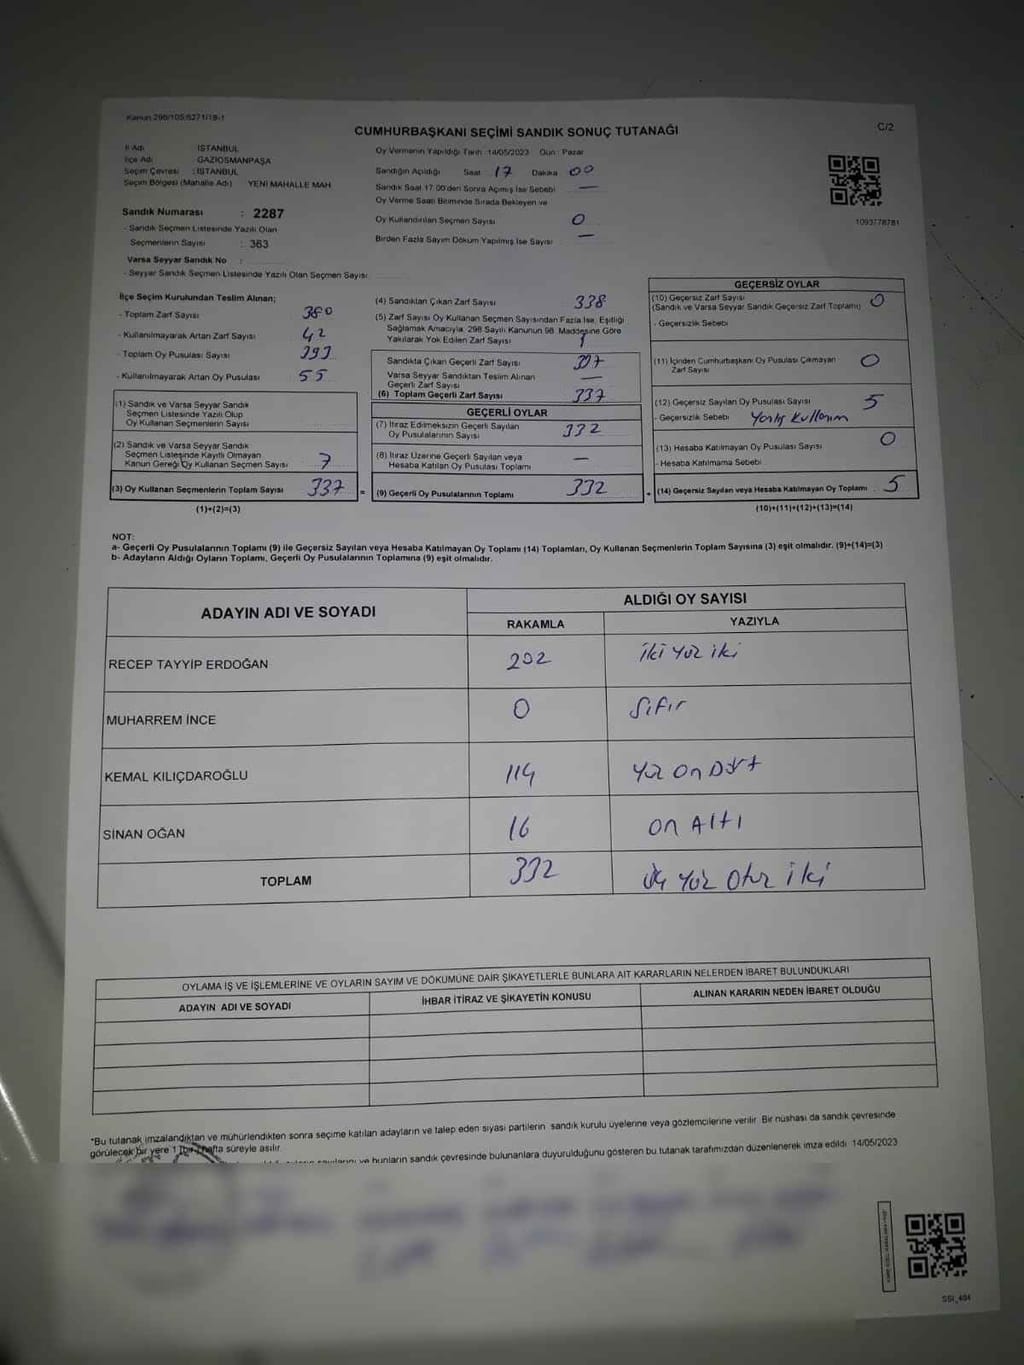 Kanun 298/105,6271/18-1
CUMHURBAŞKANI SEÇİMİ SANDIK SONUÇ TUTANAĞI
C/2
İl Adı : İSTANBUL
İlçe Adı : GAZİOSMANPAŞA
Seçim Çevresi : İSTANBUL
Seçim Bölgesi (Mahalle Adı) YENİ MAHALLE MAH
Sandık Numarası : 2287
- Sandık Seçmen Listesinde Yazılı Olan
Seçmenlerin Sayısı : 363
Varsa Seyyar Sandık No :
- Seyyar Sandık Seçmen Listesinde Yazılı Olan Seçmen Sayısı:
Oy Vermenin Yapıldığı Tarih :14/05/2023 Gün : Pazar
Sandığın Açıldığı Saat 17 Dakika 00
Sandık Saat 17.00'den Sonra Açılmış İse Sebebi —
Oy Verme Saati Bitiminde Sırada Bekleyen ve
Oy Kullandırılan Seçmen Sayısı 0
Birden Fazla Sayım Döküm Yapılmış İse Sayısı —
1093778781
İlçe Seçim Kurulundan Teslim Alınan;
- Toplam Zarf Sayısı 380
- Kullanılmayarak Artan Zarf Sayısı 42
- Toplam Oy Pusulası Sayısı 393
- Kullanılmayarak Artan Oy Pusulası 55
(1) Sandık ve Varsa Seyyar Sandık
Seçmen Listesinde Yazılı Olup
Oy Kullanan Seçmenlerin Sayısı
(2) Sandık ve Varsa Seyyar Sandık
Seçmen Listesinde Kayıtlı Olmayan
Kanun Gereği Oy Kullanan Seçmen Sayısı 7
(3) Oy Kullanan Seçmenlerin Toplam Sayısı 337
(1)+(2)=(3)
(4) Sandıktan Çıkan Zarf Sayısı 338
(5) Zarf Sayısı Oy Kullanan Seçmen Sayısından Fazla İse, Eşitliği
Sağlamak Amacıyla, 298 Sayılı Kanunun 98. Maddesine Göre
Yakılarak Yok Edilen Zarf Sayısı 1
Sandıkta Çıkan Geçerli Zarf Sayısı 337
Varsa Seyyar Sandıktan Teslim Alınan
Geçerli Zarf Sayısı —
(6) Toplam Geçerli Zarf Sayısı 337
GEÇERLİ OYLAR
(7) İtiraz Edilmeksizin Geçerli Sayılan
Oy Pusulalarının Sayısı 332
(8) İtiraz Üzerine Geçerli Sayılan veya
Hesaba Katılan Oy Pusulası Toplamı —
= (9) Geçerli Oy Pusulalarının Toplamı 332
GEÇERSİZ OYLAR
(10) Geçersiz Zarf Sayısı 0
(Sandık ve Varsa Seyyar Sandık Geçersiz Zarf Toplamı)
- Geçersizlik Sebebi
(11) İçinden Cumhurbaşkanı Oy Pusulası Çıkmayan
Zarf Sayısı 0
(12) Geçersiz Sayılan Oy Pusulası Sayısı 5
- Geçersizlik Sebebi Yanlış Kullanım
(13) Hesaba Katılmayan Oy Pusulası Sayısı 0
- Hesaba Katılmama Sebebi
+ (14) Geçersiz Sayılan veya Hesaba Katılmayan Oy Toplamı 5
(10)+(11)+(12)+(13)=(14)
NOT:
a- Geçerli Oy Pusulalarının Toplamı (9) ile Geçersiz Sayılan veya Hesaba Katılmayan Oy Toplamı (14) Toplamları, Oy Kullanan Seçmenlerin Toplam Sayısına (3) eşit olmalıdır. (9)+(14)=(3)
b- Adayların Aldığı Oyların Toplamı, Geçerli Oy Pusulalarının Toplamına (9) eşit olmalıdır.
ADAYIN ADI VE SOYADI
ALDIĞI OY SAYISI
RAKAMLA YAZIYLA
RECEP TAYYİP ERDOĞAN 202 iki yüz iki
MUHARREM İNCE 0 Sıfır
KEMAL KILIÇDAROĞLU 114 Yüz On Dört
SİNAN OĞAN 16 on Altı
TOPLAM 332 Üç Yüz Otuz iki
OYLAMA İŞ VE İŞLEMLERİNE VE OYLARIN SAYIM VE DÖKÜMÜNE DAİR ŞİKAYETLERLE BUNLARA AİT KARARLARIN NELERDEN İBARET BULUNDUKLARI
ADAYIN ADI VE SOYADI İHBAR İTİRAZ VE ŞİKAYETİN KONUSU ALINAN KARARIN NEDEN İBARET OLDUĞU
*Bu tutanak imzalandıktan ve mühürlendikten sonra seçime katılan adayların ve talep eden siyasi partilerin sandık kurulu üyelerine veya gözlemcilerine verilir. Bir nüshası da sandık çevresinde
görülecek bir yere 1 (bir) hafta süreyle asılır.
ve bunların sandık çevresinde bulunanlara duyurulduğunu gösteren bu tutanak tarafımızdan düzenlenerek imza edildi. 14/05/2023